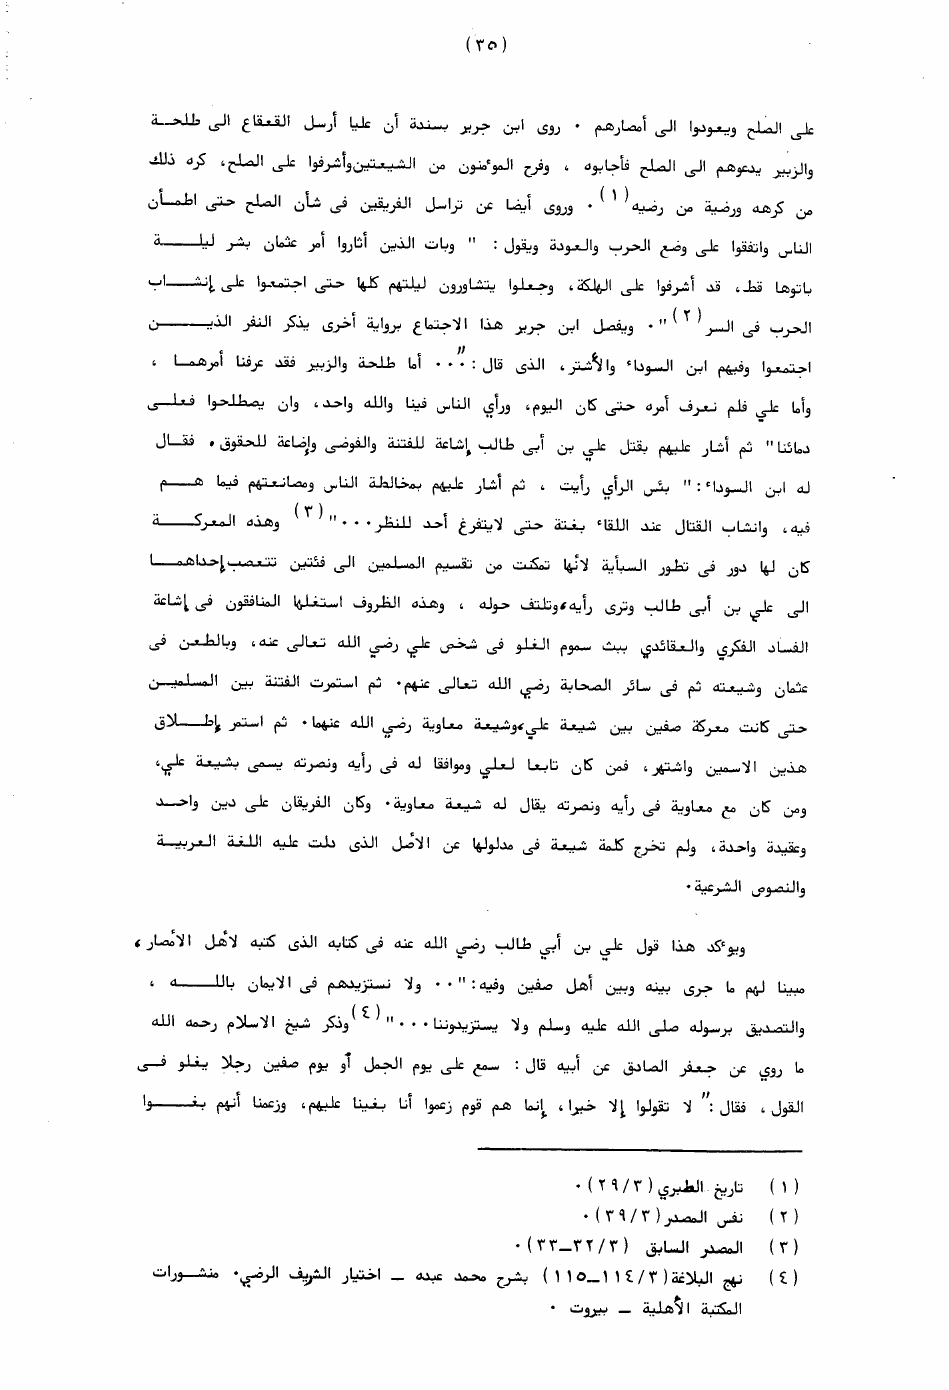 (٣٥)
على الصلح ويعودوا الى أمصارهم ٠ روى ابن جرير بسندة أن عليا أرسل القعقاع الى طلحة
والزبير يدعوهم الى الصلح فأجابوه ، وفرح الموءمنون من الشيعتين وأشرفوا على الصلح، كره ذلك
من كرهه ورضية من رضيه(١)٠ وروى أيضا عن تراسل الفريقين فى شأن الصلح حتى اطمأن
الناس واتفقوا على وضع الحرب والعودة ويقول : " وبات الذين أثاروا أمر عثمان بشر ليلة
باتوها قط، قد أشرفوا على الهلكة، وجعلوا يتشاورون ليلتهم كلها حتى اجتمعوا على إنشاب
الحرب فى السر(٢)"٠ ويفصل ابن جرير هذا الاجتماع برواية أخرى يذكر النفر الذين
اجتمعوا وفيهم ابن السوداء والأشتر، الذى قال :"٠٠٠ أما طلحة والزبير فقد عرفنا أمرهما ،
وأما علي فلم نعرف أمره حتى كان اليوم، ورأي الناس فينا والله واحد، وان يصطلحوا فعلى
دمائنا" ثم أشار عليهم بقتل علي بن أبى طالب إشاعة للفتنة والفوضى وإضاعة للحقوق، فقال
له ابن السوداء:" بئس الرأي رأيت ، ثم أشار عليهم بمخالطة الناس ومصانعتهم فيما هم
فيه، وانشاب القتال عند اللقاء بغتة حتى لايتفرغ أحد للنظر٠٠٠"(٣) وهذه المعركة
كان لها دور فى تطور السبأية لأنها تمكنت من تقسيم المسلمين الى فئتين تتعصب إحداهما
الى علي بن أبى طالب وترى رأيه،وتلتف حوله ، وهذه الظروف استغلها المنافقون فى إشاعة
الفساد الفكري والعقائدي ببث سموم الغلو فى شخص علي رضي الله تعالى عنه، وبالطعن فى
عثمان وشيعته ثم فى سائر الصحابة رضي الله تعالى عنهم٠ ثم استمرت الفتنة بين المسلمين
حتى كانت معركة صفين بين شيعة علي،وشيعة معاوية رضي الله عنهما٠ ثم استمر إطلاق
هذين الاسمين واشتهر، فمن كان تابعا لعلي وموافقا له فى رأيه ونصرته يسمى بشيعة علي،
ومن كان مع معاوية فى رأيه ونصرته يقال له شيعة معاوية٠ وكان الفريقان على دين واحد
وعقيدة واحدة، ولم تخرج كلمة شيعة فى مدلولها عن الأصل الذى دلت عليه اللغة العربية
والنصوص الشرعية٠
ويوءكد هذا قول علي بن أبي طالب رضي الله عنه فى كتابه الذى كتبه لأهل الأمصار،
مبينا لهم ما جرى بينه وبين أهل صفين وفيه:"٠٠ ولا نستزيدهم فى الايمان بالله ،
والتصديق برسوله صلى الله عليه وسلم ولا يستزيدوننا٠٠٠"(٤)وذكر شيخ الاسلام رحمه الله
ما روي عن جعفر الصادق عن أبيه قال : سمع على يوم الجمل أو يوم صفين رجلا يغلو فى
القول، فقال :" لا تقولوا إلا خيرا، إنما هم قوم زعموا أنا بغينا عليهم، وزعمنا أنهم بغوا
(١) تاريخ الطبري (٢٩/٣)٠
(٢) نفس المصدر(٣٩/٣)٠
(٣) المصدر السابق (٣٢/٣-٣٣)٠
(٤) نهج البلاغة(١١٤/٣-١١٥) بشرح محمد عبده - اختيار الشريف الرضي٠ منشورات
المكتبة الأهلية - بيروت ٠